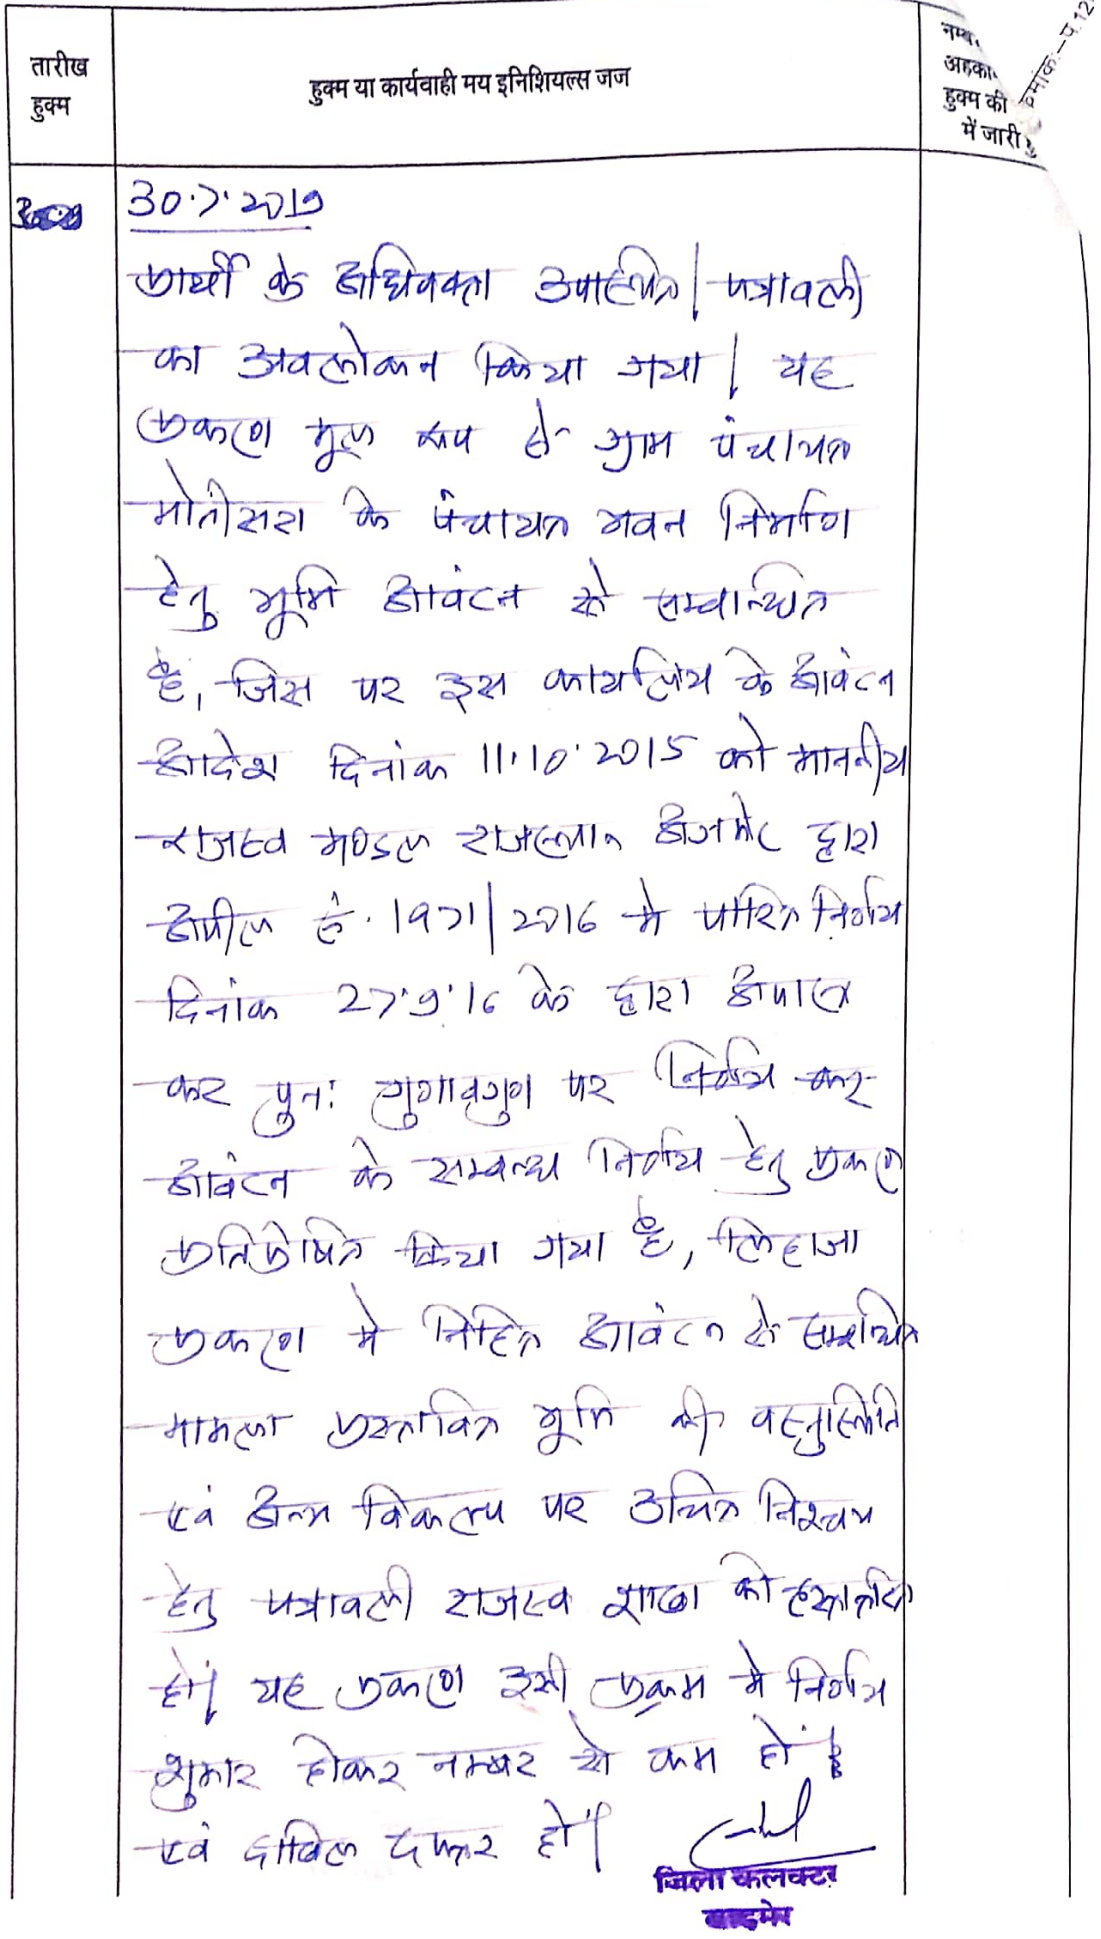 तारीख
हुक्म
हुक्म या कार्यवाही मय इनिशियल्स जज
नम्ब
अहका
हुक्म की
में जारी हु
क्रमांक:–प.12
30.7.2019
प्रार्थी के अधिवक्ता उपस्थित। पत्रावली
का अवलोकन किया गया। यह
प्रकरण मूल रूप से ग्राम पंचायत
मोतीसरा के पंचायत भवन निर्माण
हेतु भूमि आवंटन से सम्बन्धित
है, जिस पर इस कार्यालय के आवंटन
आदेश दिनांक 11.10.2015 को माननीय
राजस्व मण्डल राजस्थान अजमेर द्वारा
अपील सं. 1971/2016 मे पारित निर्णय
दिनांक 27.9.16 के द्वारा अपास्त
कर पुनः गुणावगुण पर निर्णय कर
आवंटन के सम्बन्ध निर्णय हेतु प्रकरण
प्रतिप्रेषित किया गया है, लिहाजा
प्रकरण मे निहित आवंटन से सम्बन्धित
मामला प्रस्तावित भूमि की वस्तुस्थिति
एवं अन्य विकल्प पर उचित निश्चय
हेतु पत्रावली राजस्व शाखा को हस्तान्तरित
हो। यह प्रकरण इसी प्रक्रम मे निर्णय
शुमार होकर नम्बर से कम हो
एवं दाखिल दफ्तर हो।
जिला कलक्टर
बाड़मेर